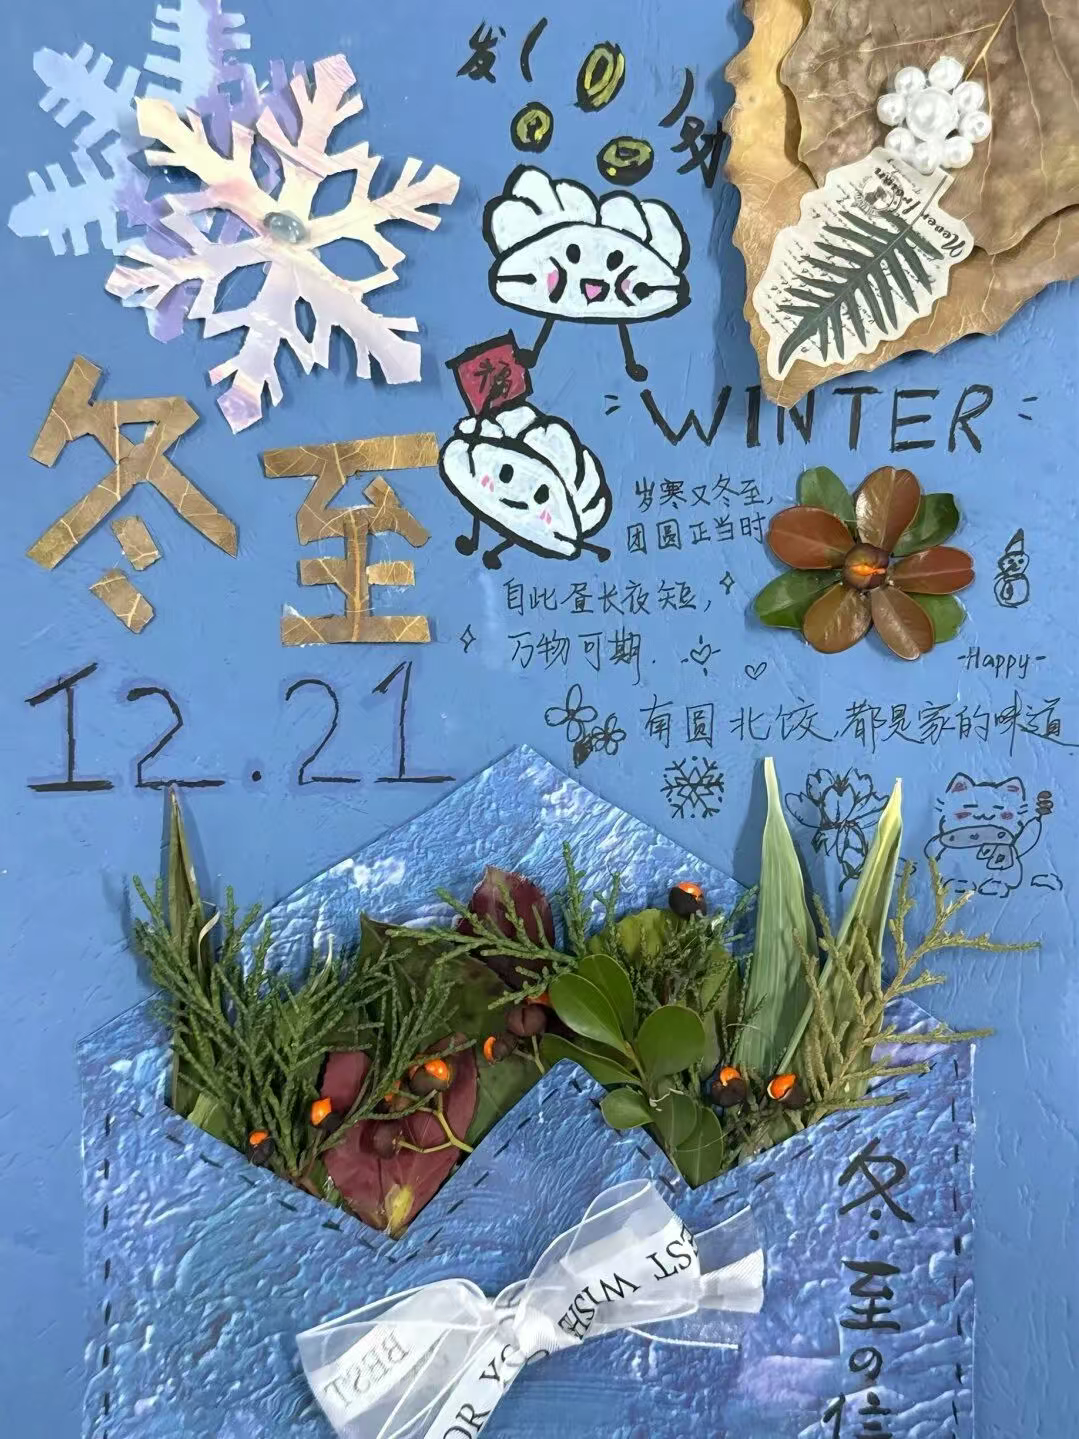 发(
)财
福
冬至
WINTER
岁寒又冬至,
团圆正当时
自此昼长夜短,
万物可期.
-Happy-
12.21
南圆北饺,都是家的味道
Never
冬至の信
BEST
OR YO
WISH
EST WISH